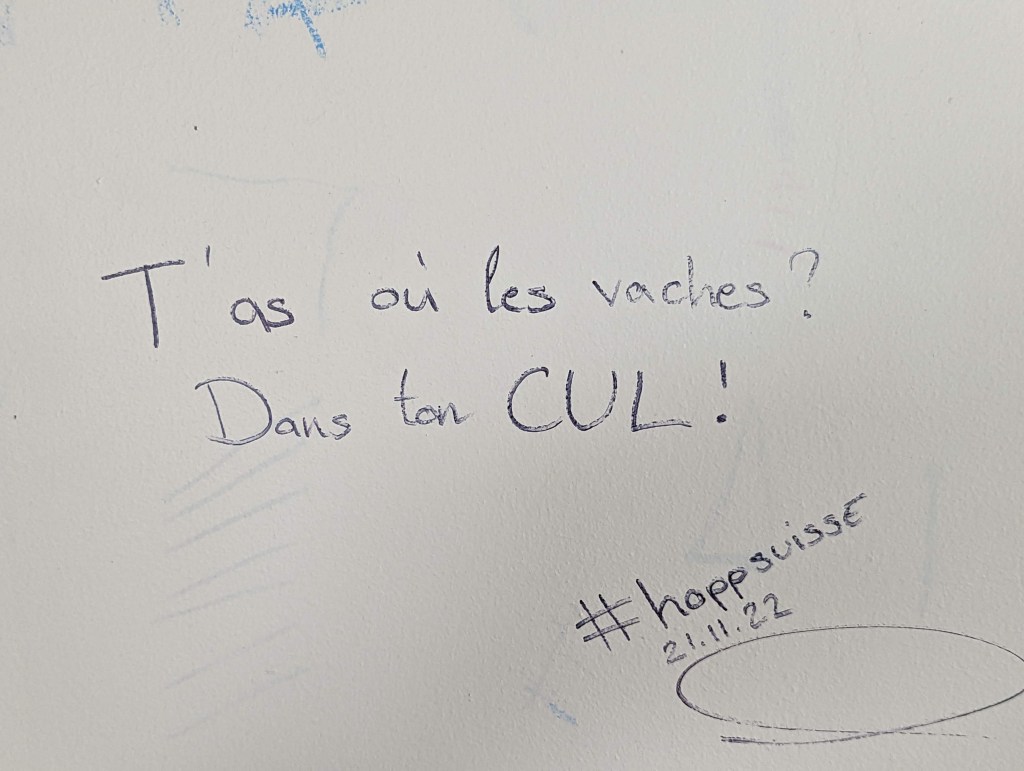 T'as où les vaches?
Dans ton CUL!
#hoppsuisse
21.11.22